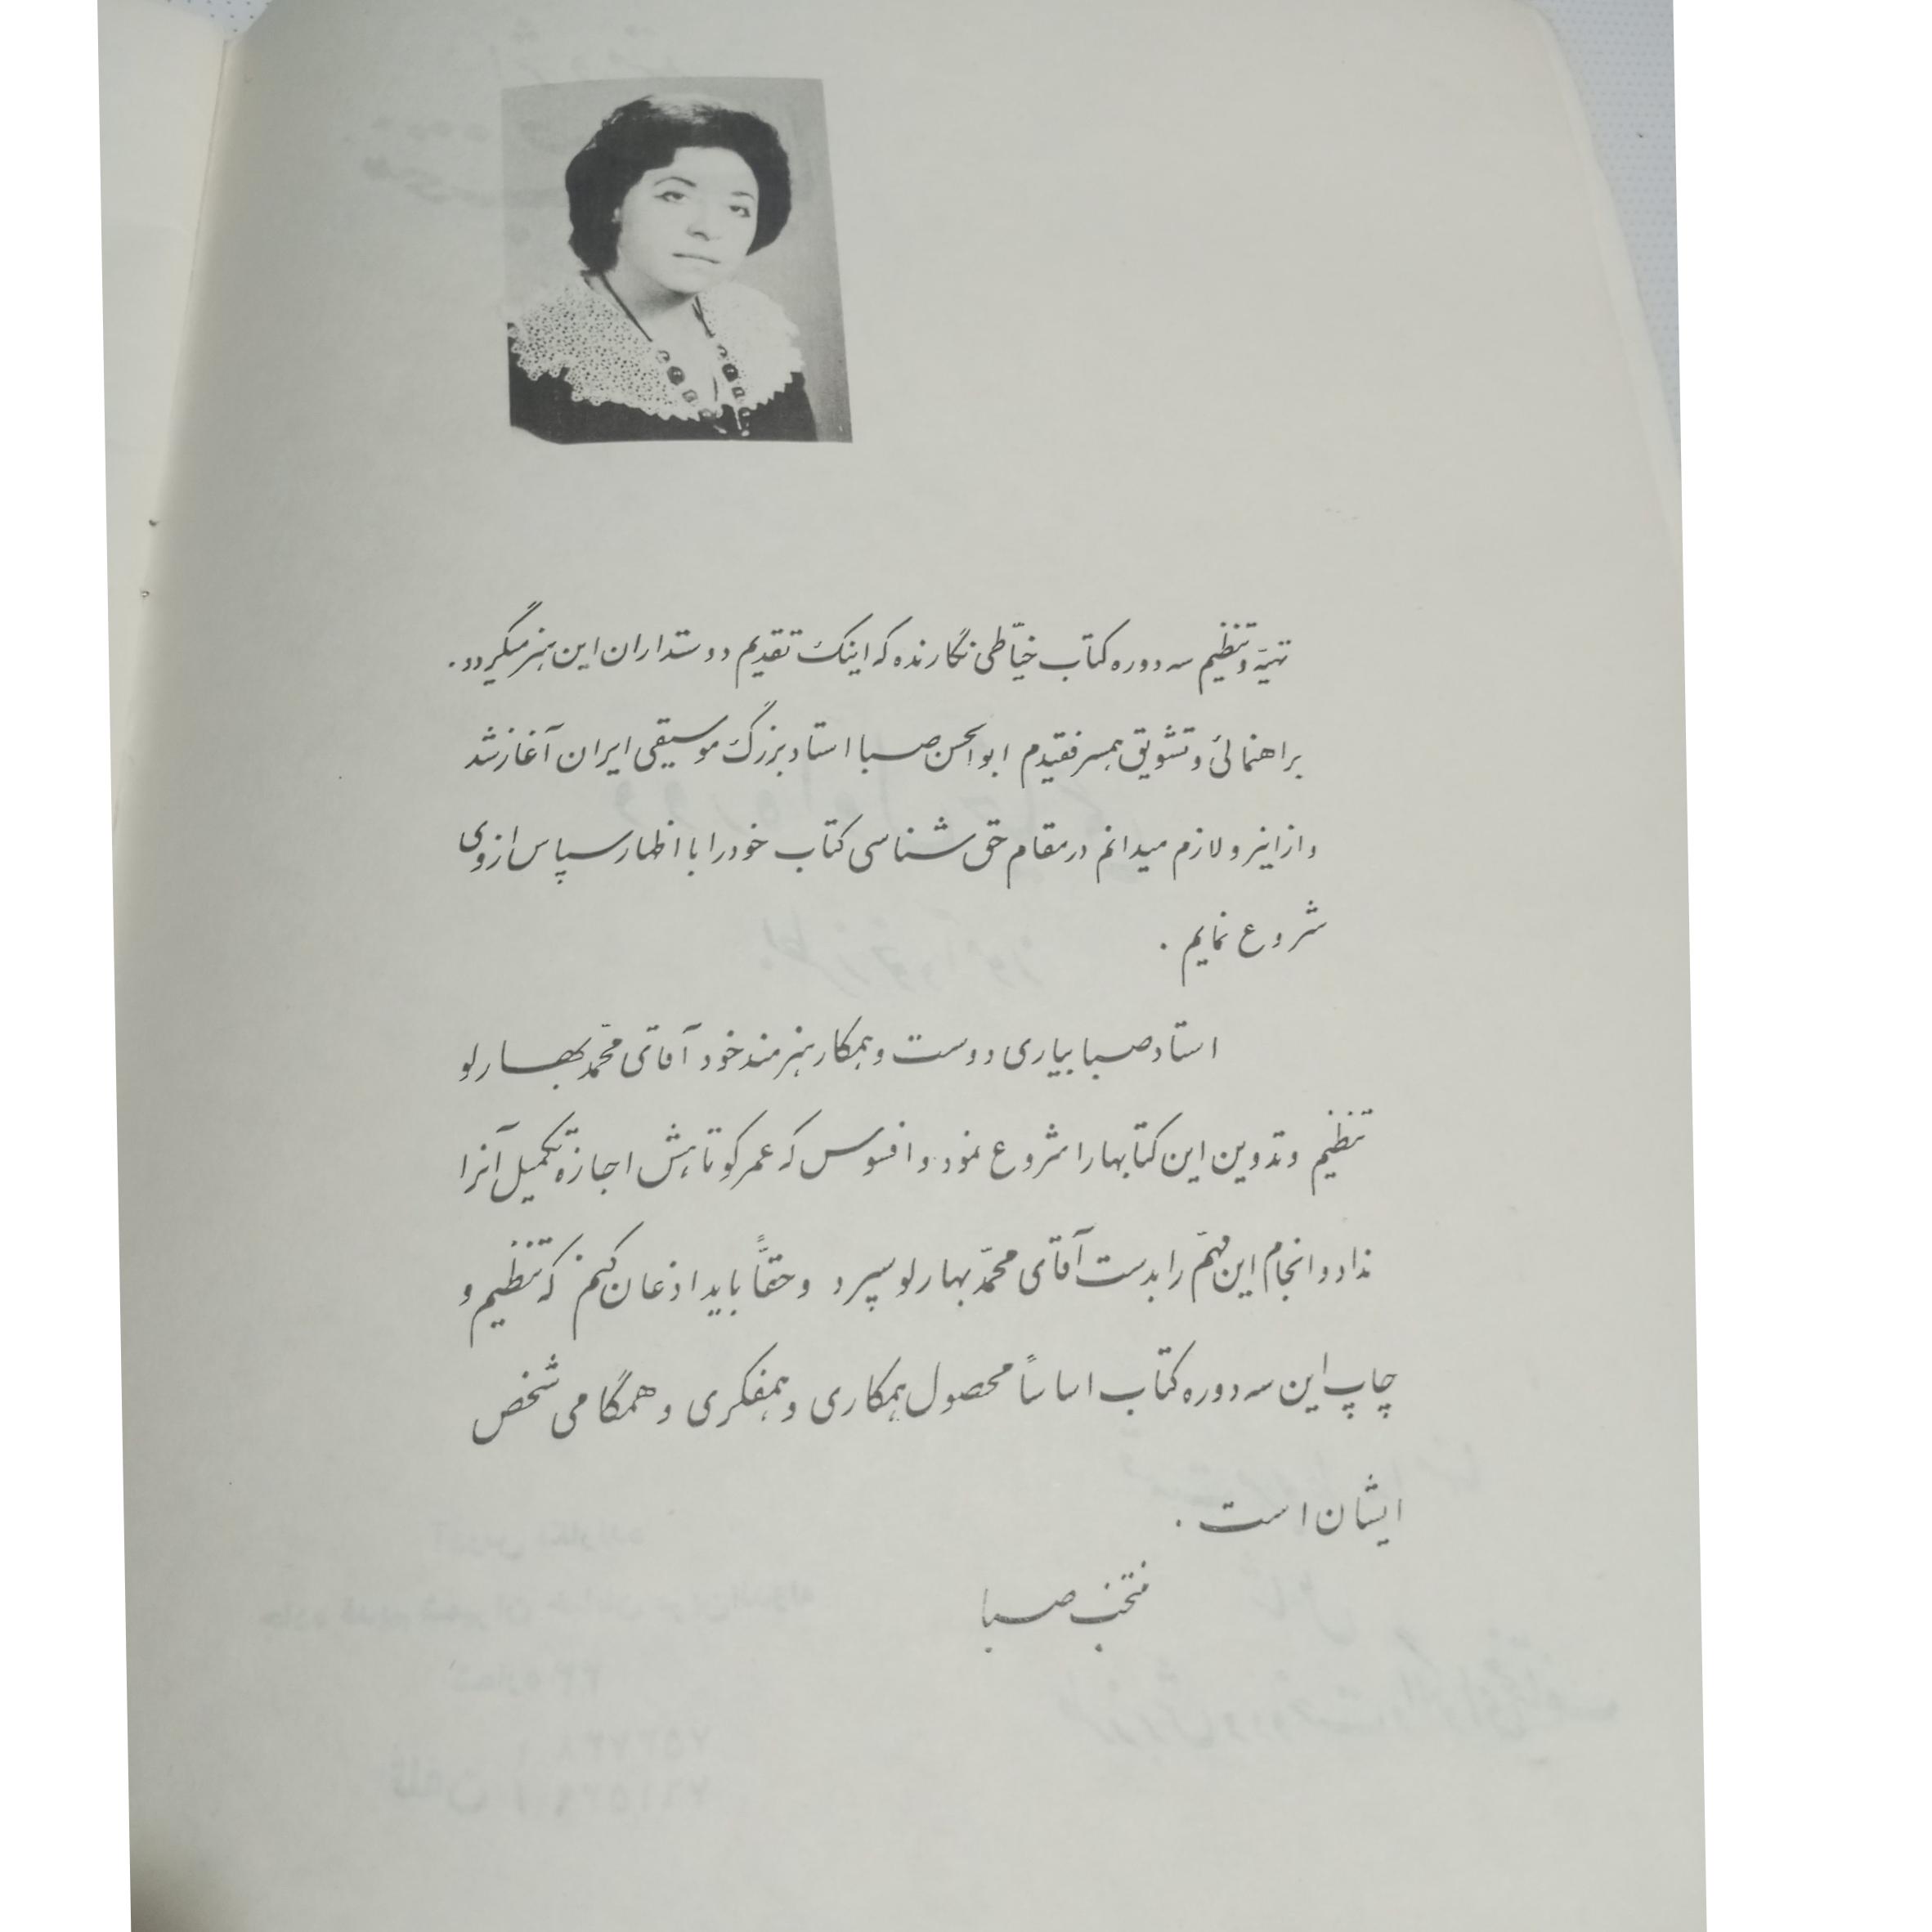 تهیّه و تنظیم سه دوره کتاب خیّاطی نگارنده که اینک تقدیم دوستداران این هنر میگردد.
براهنمائی و تشویق همسر فقیدم ابوالحسن صبا استاد بزرگ موسیقی ایران آغاز شد
و از اینرو لازم میدانم در مقام حق شناسی کتاب خود را با اظهار سپاس از وی
شروع نمایم .
استاد صبا بیاری دوست و همکار هنرمند خود آقای محمّد بهارلو
تنظیم و تدوین این کتابها را شروع نمود و افسوس که عمر کوتاهش اجازه تکمیل آنرا
نداد و انجام این مهمّ را بدست آقای محمّد بهارلو سپرد و حقّاً باید اذعان کنم که تنظیم و
چاپ این سه دوره کتاب اساساً محصول همکاری و همفکری و همگامی شخص
ایشان است .
منتخب صبا